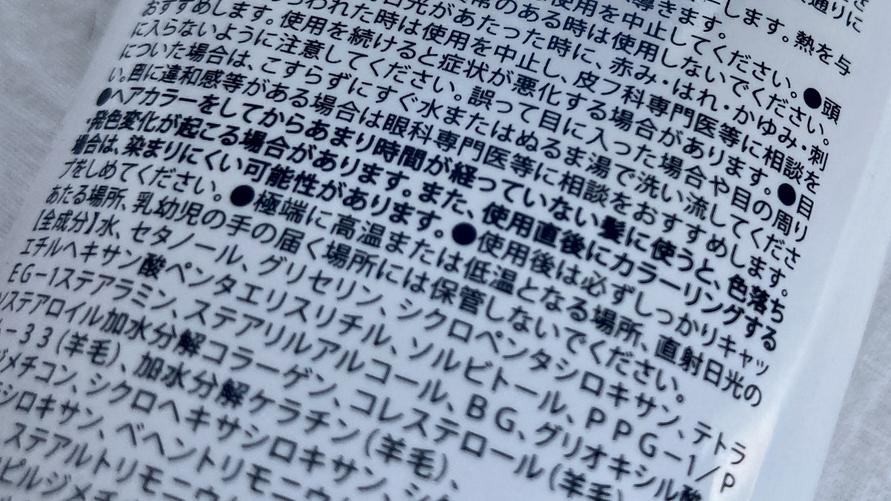 通りに
導きます。
します。熱を与
おすすめします。使用
使用を中止してください。●頭
常のある時は使用しないでください。
われた時は使用を中止し、皮フ科専門医等に相談を
日光があたった時に、赤み・はれ・かゆみ・刺
に入らないように注意してください。誤って目に入った場合や目の周り
使用を続けると症状が悪化する場合があります。●目
についた場合は、こすらずにすぐ水またはぬるま湯で洗い流してくださ
い。目に違和感等がある場合は眼科専門医等に相談をおすすめします。
●ヘアカラーをしてからあまり時間が経っていない髪に使うと、色落ち
・発色変化が起こる場合があります。また、使用直後にカラーリングする
場合は、染まりにくい可能性があります。●使用後は必ずしっかりキャッ
プをしめてください。●極端に高温または低温となる場所、直射日光の
あたる場所、乳幼児の手の届く場所には保管しないでください。
【全成分】水、セタノール、グリセリン、シクロペンタシロキサン、テトラ
エチルヘキサン酸ペンタエリスリチル、ソルビトール、PPG-1/P
EG-1ステアラミン、ステアリルアルコール、BG、グリオキシル酸
ステアロイル加水分解コラーゲン、コレステロール(羊毛)
-33(羊毛)、加水分解ケラチン(羊毛)、
ジメチコン、シクロヘキサシロキサン、シク
シロキサン、ベヘントリモニウ
ステアルトリモニウ